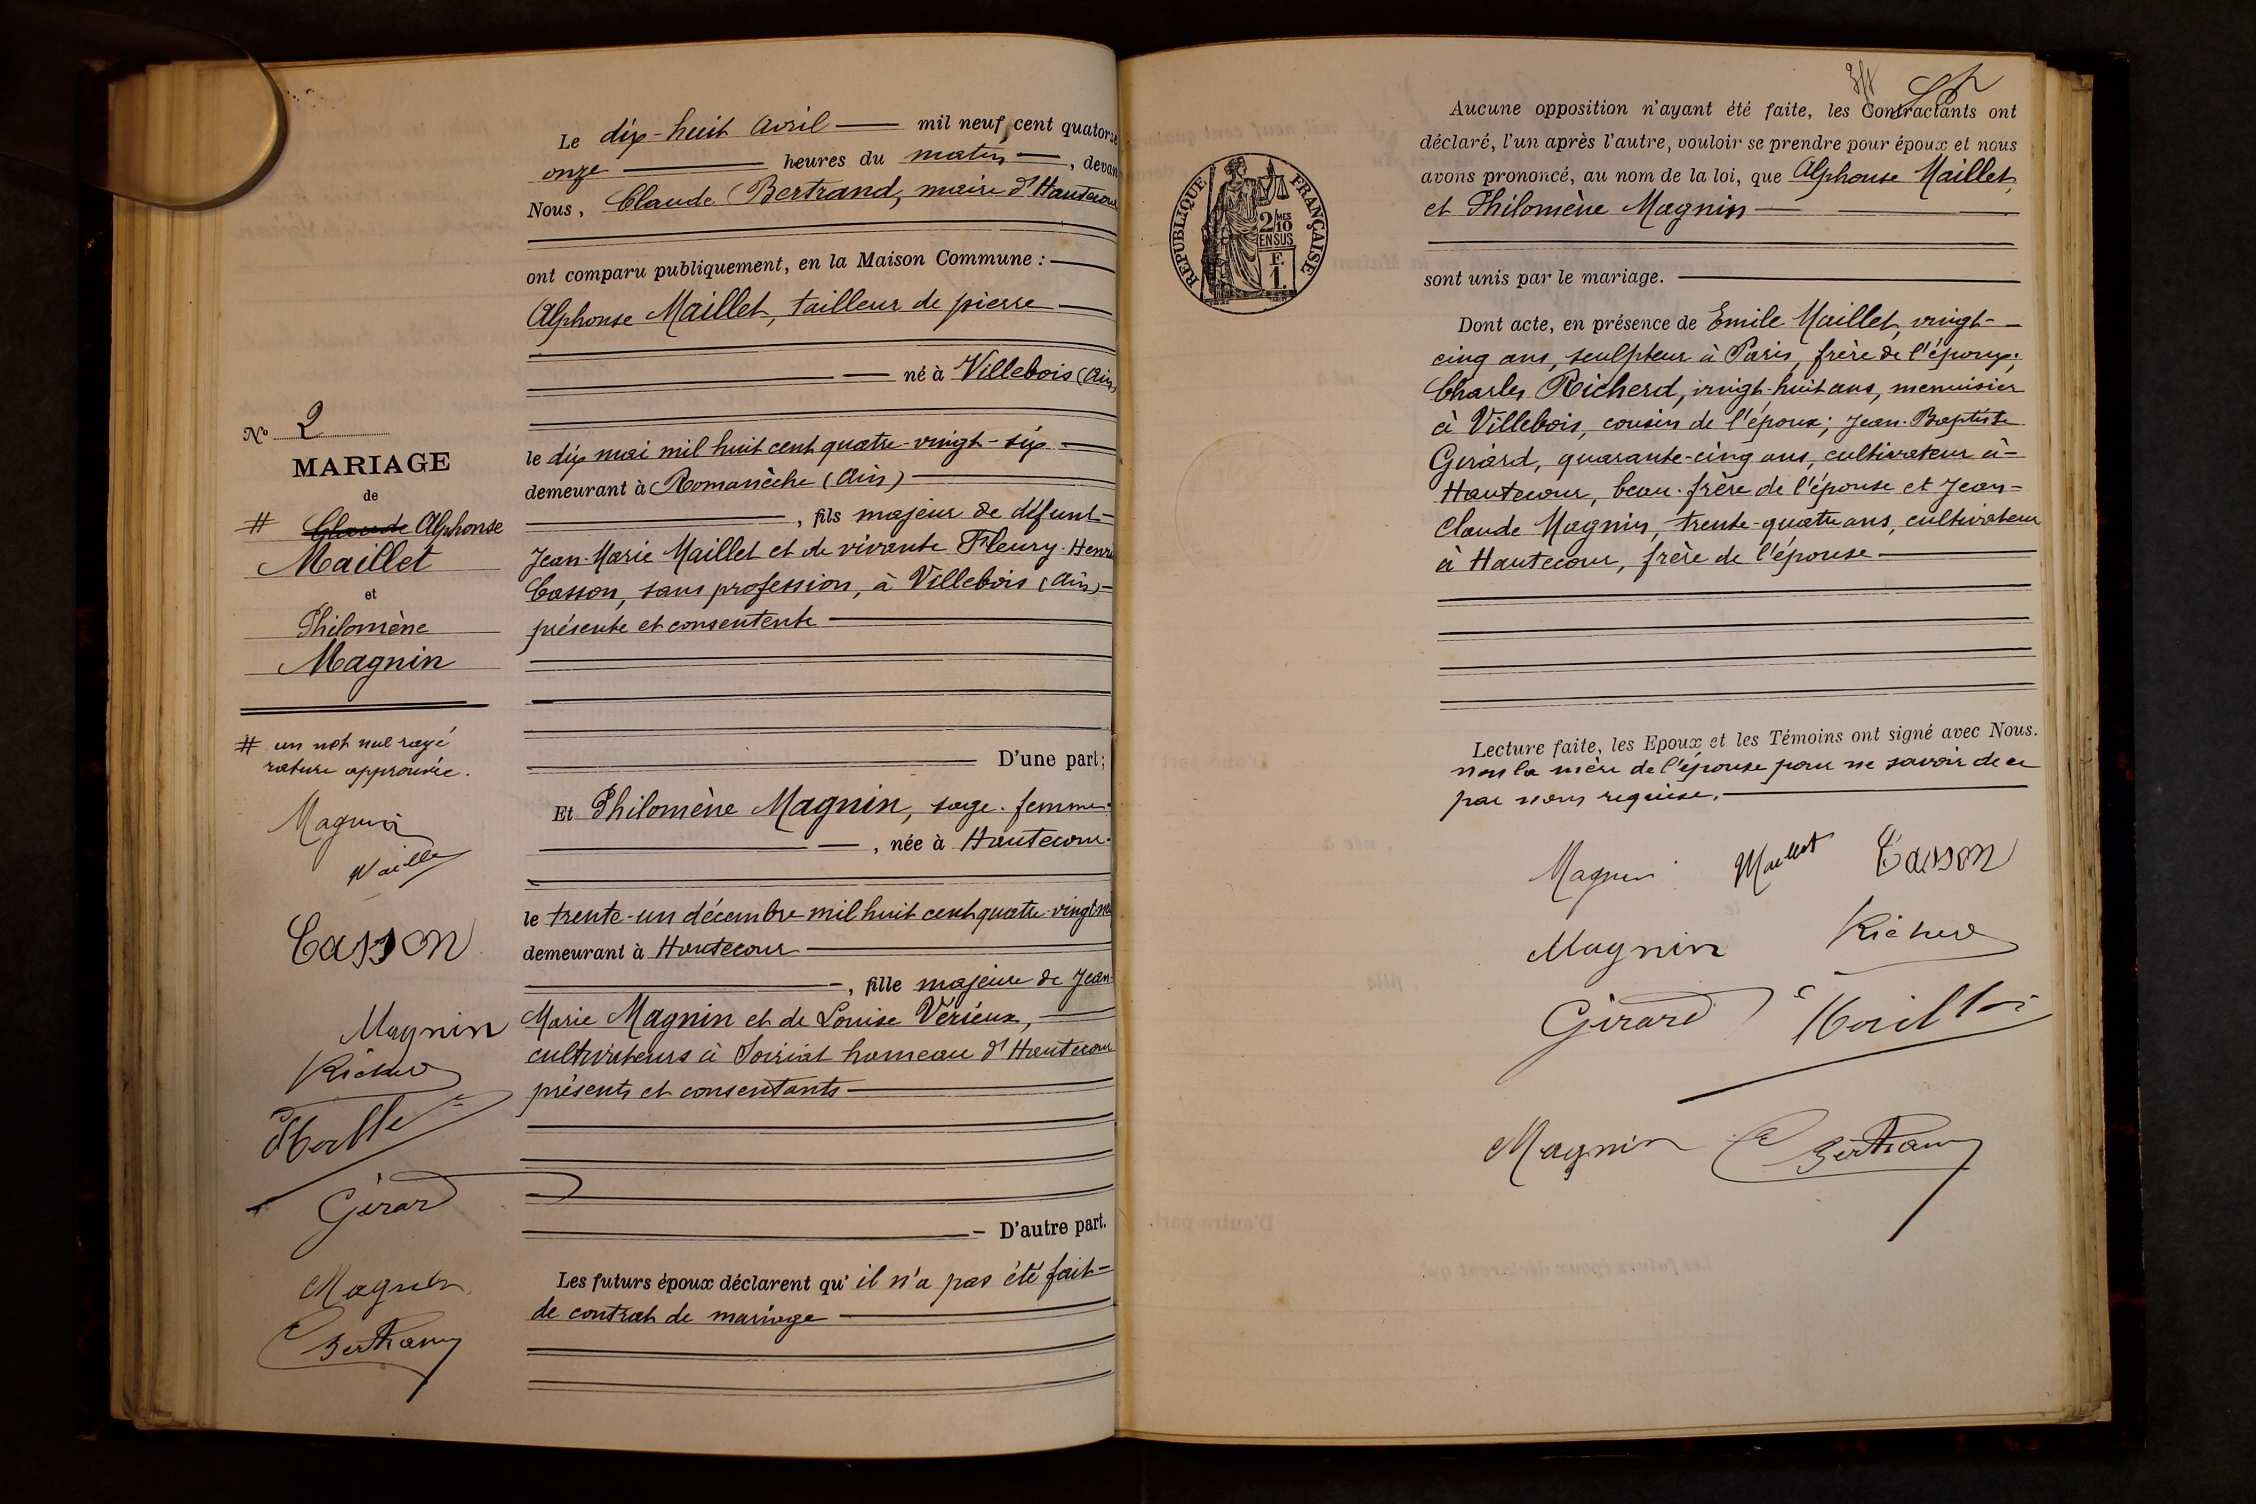 Nº 2
MARIAGE
de
# Claude Alphonse
Maillet
et
Philomène
Magnin
# un mot nul rayé
rature approuvée.
Magnin
Maillet
Casson
Magnin
Richerd
Maillet
Girard
Magnin
C Bertrand
Le dix-huit avril mil neuf cent quatorze
onze heures du matin, devant
Nous, Claude Bertrand, maire d'Hautecour
ont comparu publiquement, en la Maison Commune :
Alphonse Maillet, tailleur de pierre
né à Villebois (Ain)
le dix mai mil huit cent quatre-vingt-six
demeurant à Romanèche (Ain)
, fils majeur de défunt
Jean-Marie Maillet et de vivante Fleury-Henri
Casson, sans profession, à Villebois (Ain)
présente et consentente
D'une part ;
Et Philomène Magnin, sage-femme
, née à Hautecour
le trente-un décembre mil huit cent quatre-vingt
demeurant à Hautecour
, fille majeure de Jean
Marie Magnin et de Louise Vérieux,
cultivateurs à hameau d'Hautecour
présents et consentants
D'autre part.
Les futurs époux déclarent qu'il n'a pas été fait
de contrat de mariage
REPUBLIQUE FRANÇAISE
2/10 MES
EN SUS
F.
1.
Aucune opposition n'ayant été faite, les Contractants ont
déclaré, l'un après l'autre, vouloir se prendre pour époux et nous
avons prononcé, au nom de la loi, que Alphonse Maillet
et Philomène Magnin
sont unis par le mariage.
Dont acte, en présence de Emile Maillet, vingt-
cinq ans, sculpteur à Paris, frère de l'époux ;
Charles Richerd, vingt-huit ans, menuisier
à Villebois, cousin de l'époux ; Jean-Baptiste
Girard, quarante-cinq ans, cultivateur à
Hautecour, beau-frère de l'épouse et Jean-
Claude Magnin, trente-quatre ans, cultivateur
à Hautecour, frère de l'épouse
Lecture faite, les Epoux et les Témoins ont signé avec Nous.
non la mère de l'épouse pour ne savoir de ce
par nous requise.
Magnin Maillet Casson
Magnin Richerd
Girard E Maillet
Magnin C Bertrand